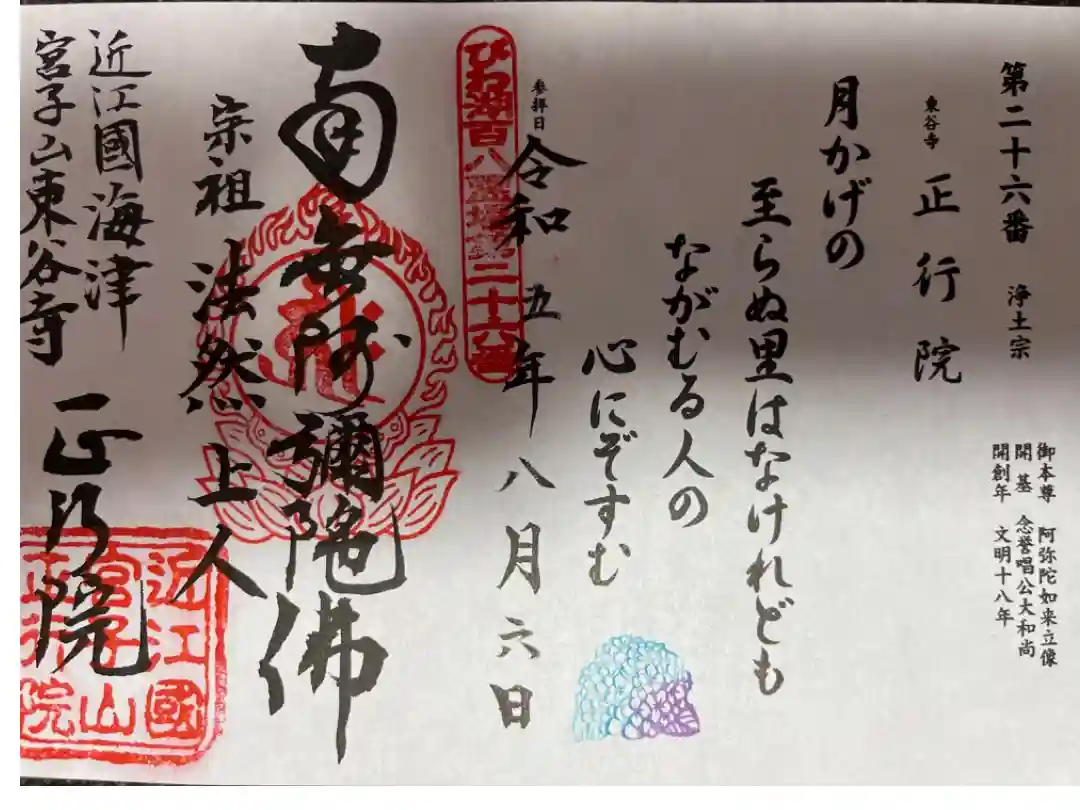 第二十六番 浄土宗
御本尊 阿弥陀如来立像
開基 念誉唱公大和尚
開創年 文明十八年
東谷寺 正行院
月かげの
至らぬ里はなけれども
ながむる人の
心にぞすむ
参拝日 令和五年八月六日
びわ湖百八霊場第二十六番
南無阿彌陀佛
宗祖 法然上人
近江國海津
宮子山東谷寺 正行院
近江國
宮子山
正行院